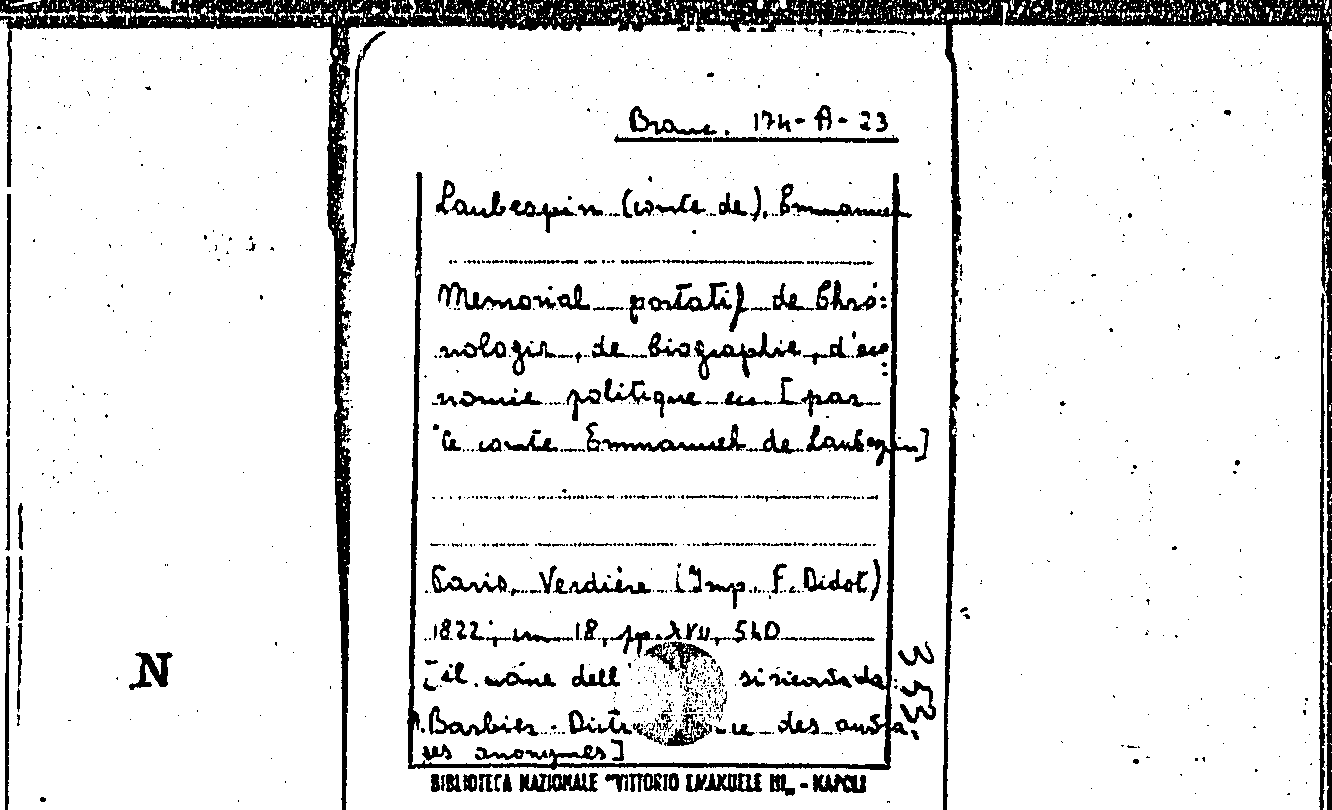 Branc. 174-A-23
Laubespin (comte de), Emmanuel
Memorial portatif de Chro:
nologie, de biographie, d'eco
nomie politique ecc [par
le comte Emmanuel de Laubespin]
Paris, Verdière (Imp. F. Didot)
1822; in 18, pp. XVII, 540
[il nome dell' si ricorda da
A. Barbier - Dict des auto
res anonymes]
353.
N
BIBLIOTECA NAZIONALE "VITTORIO EMANUELE III" - NAPOLI